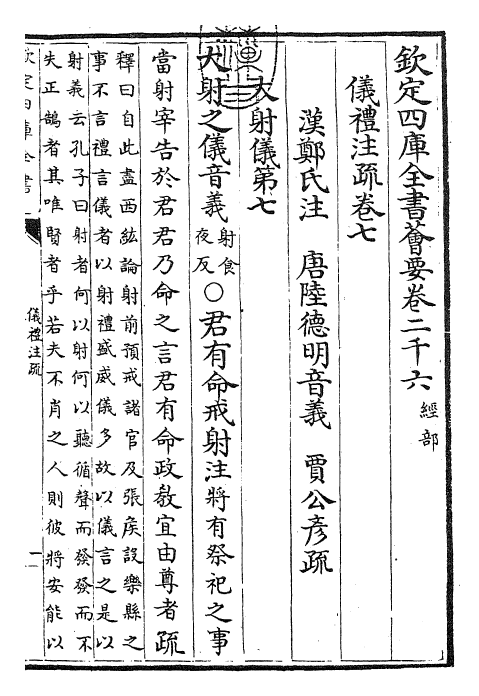 欽定四庫全書薈要卷二千六 經部
儀禮注疏卷七
漢鄭氏注 唐陸德明音義 賈公彦疏
大射儀第七
大射之儀音義射食夜反○君有命戒射注將有祭祀之事
當射宰告於君君乃命之言君有命政教宜由尊者疏
釋曰自此盡西紘論射前預戒諸官及張侯設樂縣之
事不言禮言儀者以射禮盛威儀多故以儀言之是以
射義云孔子曰射者何以射何以聽循聲而發發而不
失正鵠者其唯賢者乎若夫不肖之人則彼將安能以
欽定四庫全書
儀禮注疏
一